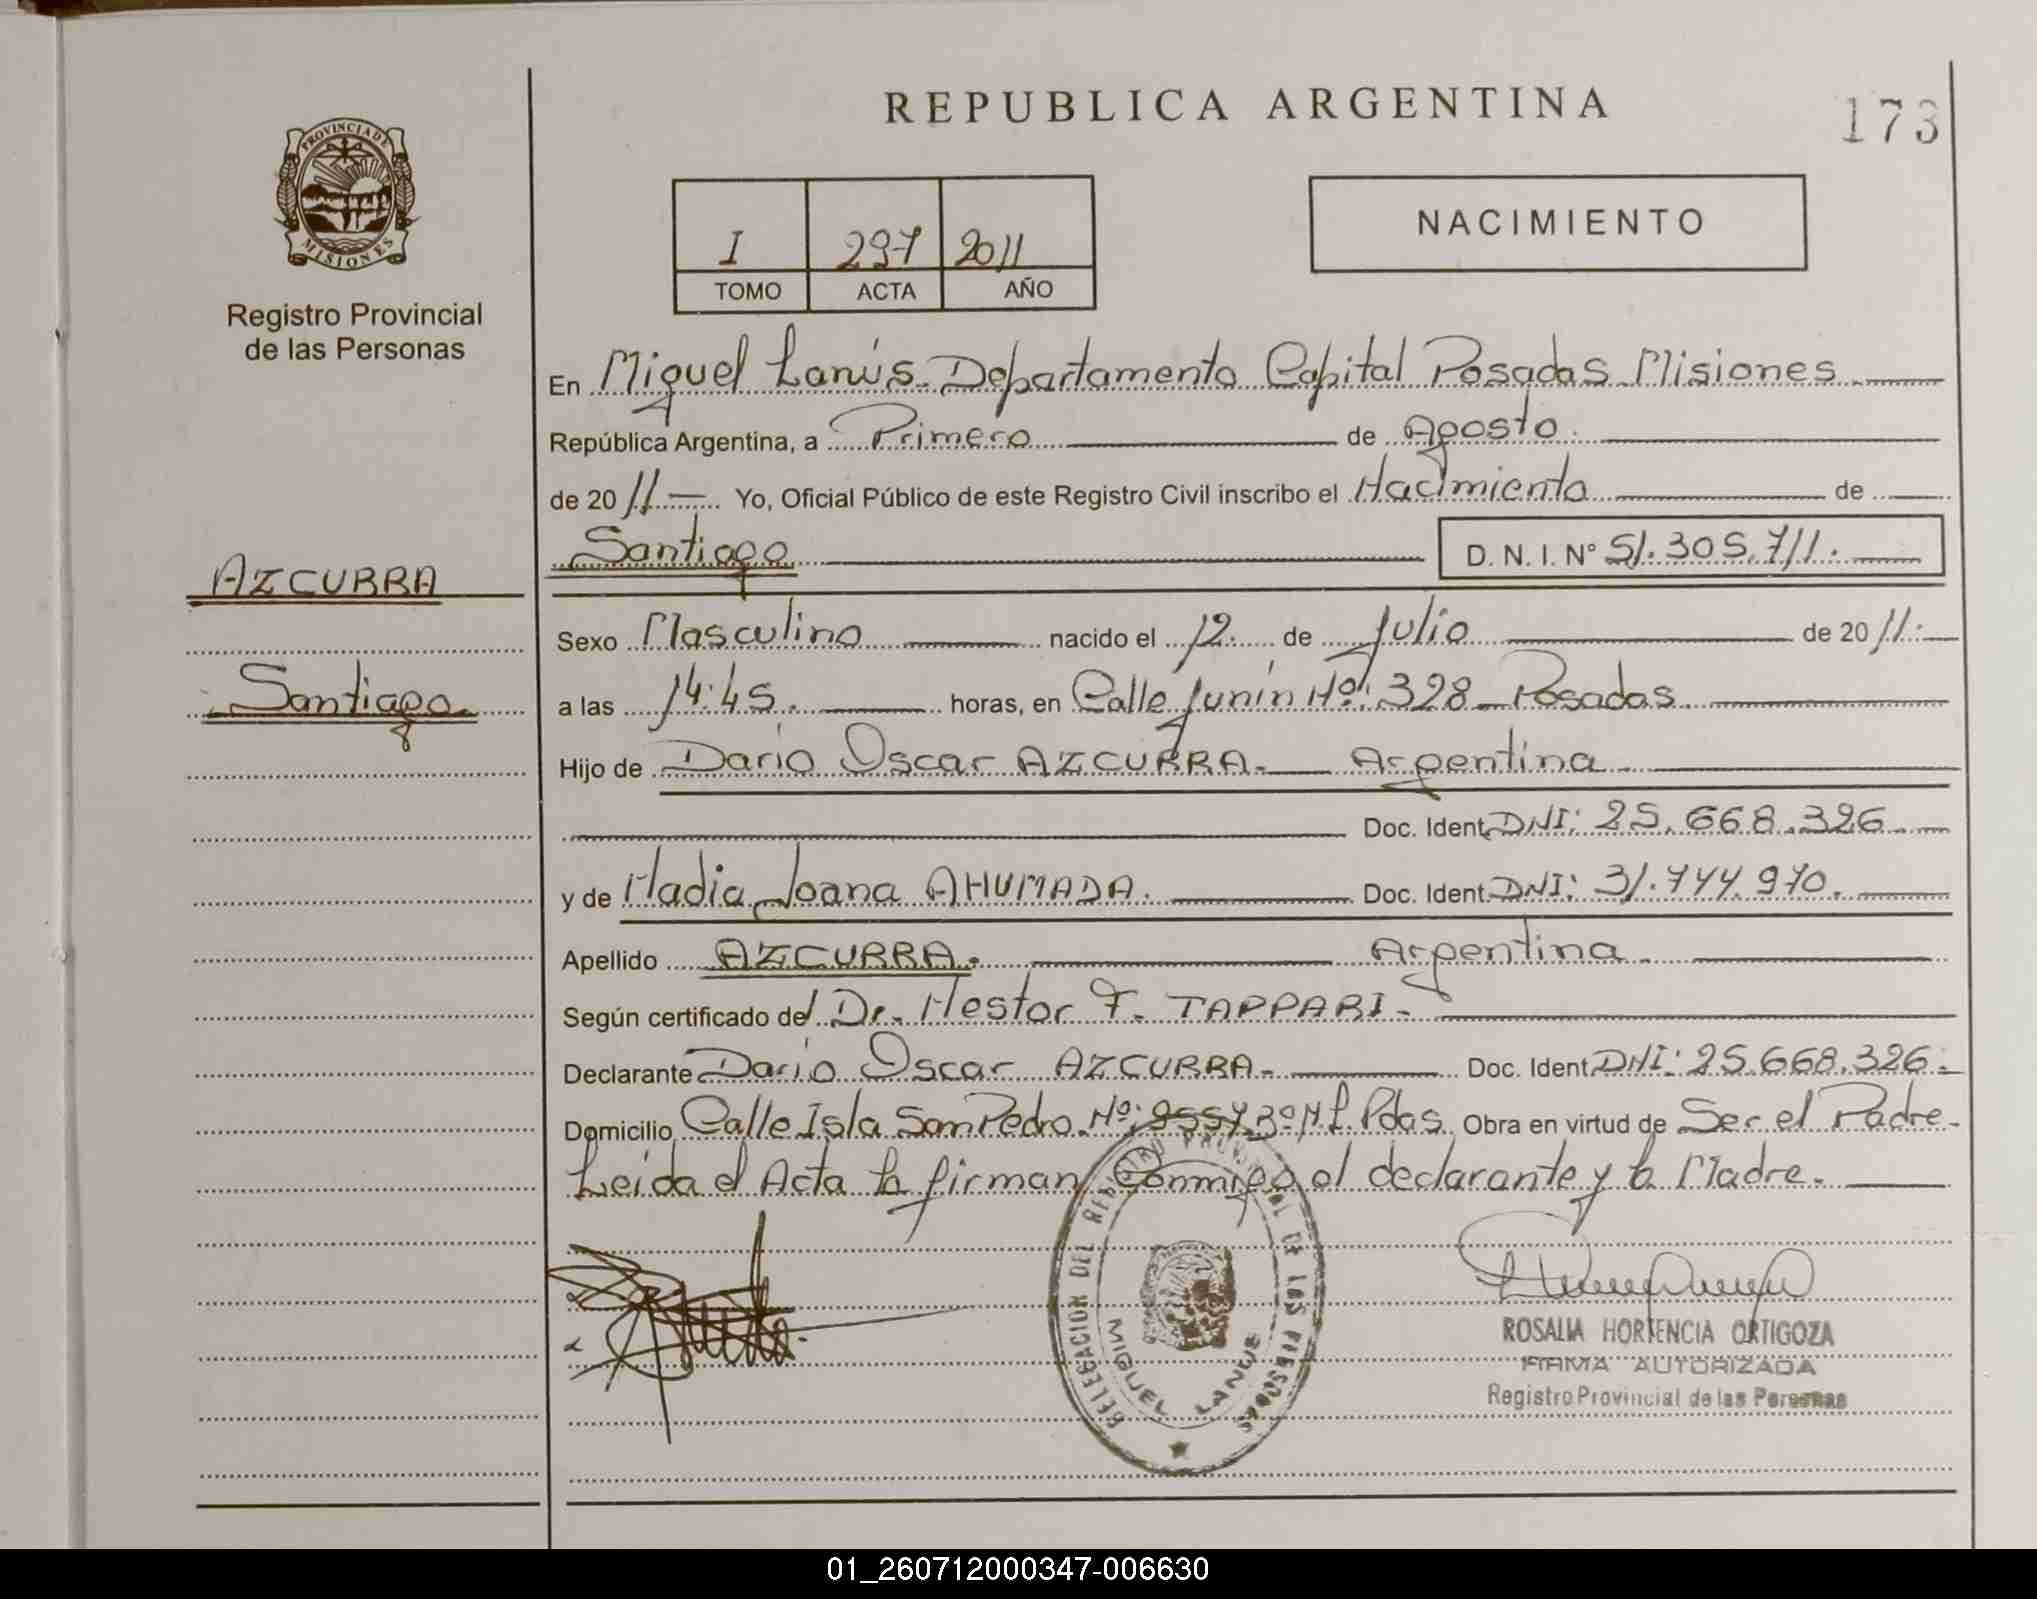 REPUBLICA ARGENTINA
173
PROVINCIA DE
MISIONES
Registro Provincial
de las Personas
I 297 2011
TOMO ACTA AÑO
NACIMIENTO
En Miguel Lanús Departamento Capital Posadas Misiones
República Argentina, a Primero de Agosto
de 2011 Yo, Oficial Público de este Registro Civil inscribo el Nacimiento de
Santiago D. N. I. N° 51.305.711.
AZCURRA
Santiago
Sexo Masculino nacido el 12. de Julio de 2011.
a las 14:45. horas, en Calle Junín Nº: 328 Posadas
Hijo de Darío Oscar AZCURRA. Argentina
Doc. Ident. DNI: 25.668.326
y de Nadia Joana AHUMADA. Doc. Ident. DNI: 31.744.970.
Apellido AZCURRA. Argentina
Según certificado del Dr. Nestor F. TAPPARI.
Declarante Darío Oscar AZCURRA. Doc. Ident. DNI: 25.668.326.
Domicilio Calle Isla San Pedro Nº: Pdas. Obra en virtud de Ser el Padre
Leída el Acta la firman Conmigo el declarante y la Madre.
DELEGACION DEL REGISTRO PROVINCIAL DE LAS PERSONAS
MIGUEL LANUS
ROSALIA HORTENCIA ORTIGOZA
FIRMA AUTORIZADA
Registro Provincial de las Personas
01_260712000347-006630